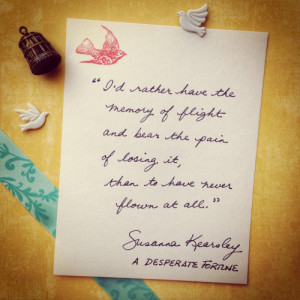 "I'd rather have the
memory of flight
and bear the pain
of losing it,
than to have never
flown at all."
Susanna Kearsley
A DESPERATE FORTUNE